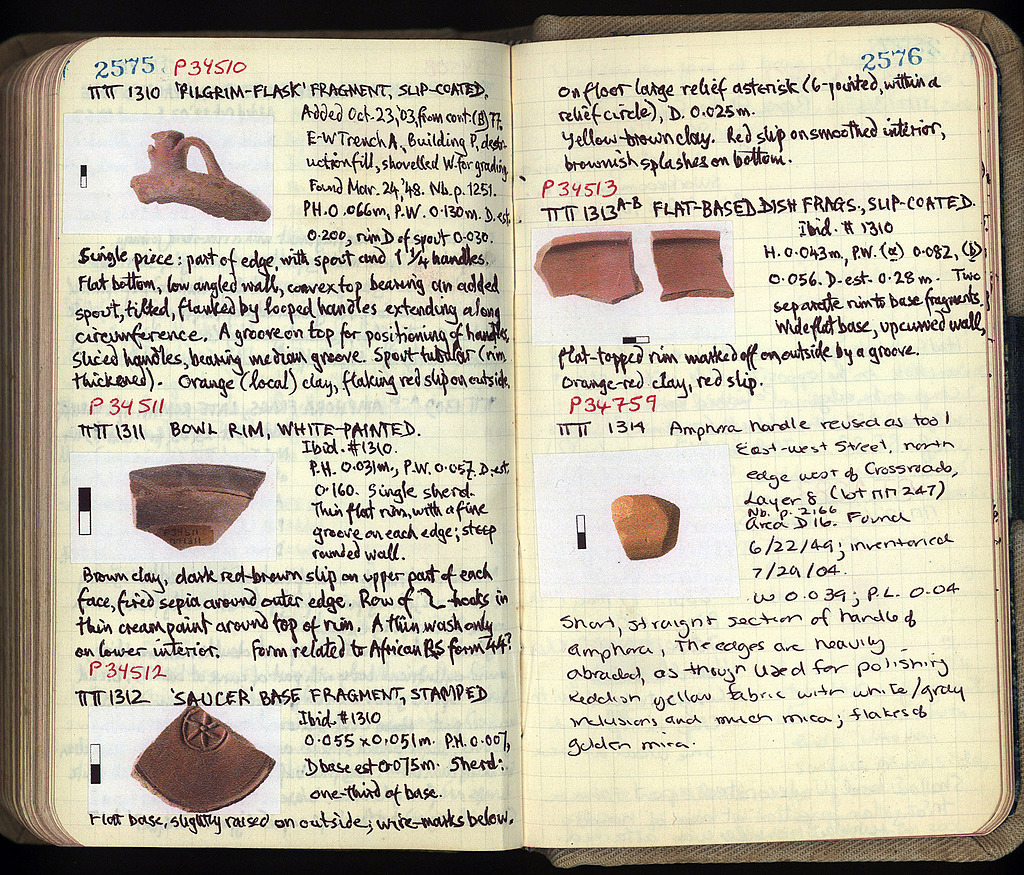 2575 P34510
ΠΠ 1310 'PILGRIM-FLASK' FRAGMENT, SLIP-COATED.
Added Oct. 23, '03, from cont. (B) 77.
E-W Trench A, Building P, destr-
uction fill, shovelled W. for grading.
Found Mar. 24, '48. Nb. p. 1251.
PH. 0.066m, P.W. 0.130m. D. est.
0.200, rim D of spout 0.030.
Single piece: part of edge, with spout and 1 1/4 handles.
Flat bottom, low angled wall, convex top bearing an added
spout, tilted, flanked by looped handles extending along
circumference. A groove on top for positioning of handles,
sliced handles, bearing median groove. Spout tubular (rim
thickened). Orange (local) clay, flaking red slip on outside.
P 34511
ΠΠ 1311 BOWL RIM, WHITE-PAINTED.
Ibid. #1310.
P.H. 0.031m, P.W. 0.057. D. est.
0.160. Single sherd.
Thin flat rim, with a fine
groove on each edge; steep
rounded wall.
Brown clay, dark red-brown slip on upper part of each
face, fired sepia around outer edge. Row of hooks in
thin cream paint around top of rim. A thin wash only
on lower interior. Form related to African RS form 44?
P34512
ΠΠ 1312 'SAUCER' BASE FRAGMENT, STAMPED
Ibid. #1310
0.055 x 0.051m. P.H. 0.007,
D base est 0.075m. Sherd:
one-third of base.
Flat base, slightly raised on outside; wire-marks below.
2576
on floor large relief asterisk (6-pointed, within a
relief circle), D. 0.025m.
Yellow-brown clay. Red slip on smoothed interior,
brownish splashes on bottom.
P34513
ΠΠ 1313 A-B FLAT-BASED DISH FRAGS., SLIP-COATED.
Ibid. # 1310
H. 0.043m, P.W. (a) 0.082, (b)
0.056. D. est. 0.28m. Two
separate rim to base fragments.
Wide flat base, upcurved wall,
flat-topped rim marked off on outside by a groove.
Orange-red clay, red slip.
P34759
ΠΠ 1314 Amphora handle reused as tool
East-west Street, north
edge west of Crossroads,
Layer 8 (lot ΠΠ 247)
Nb. p. 2166
Area D16. Found
6/22/49; inventoried
7/29/04.
W 0.039; P.L. 0.04
Short, straight section of handle of
amphora, The edges are heavily
abraded, as though used for polishing
Reddish yellow fabric with white/gray
inclusions and much mica; flakes of
golden mica.